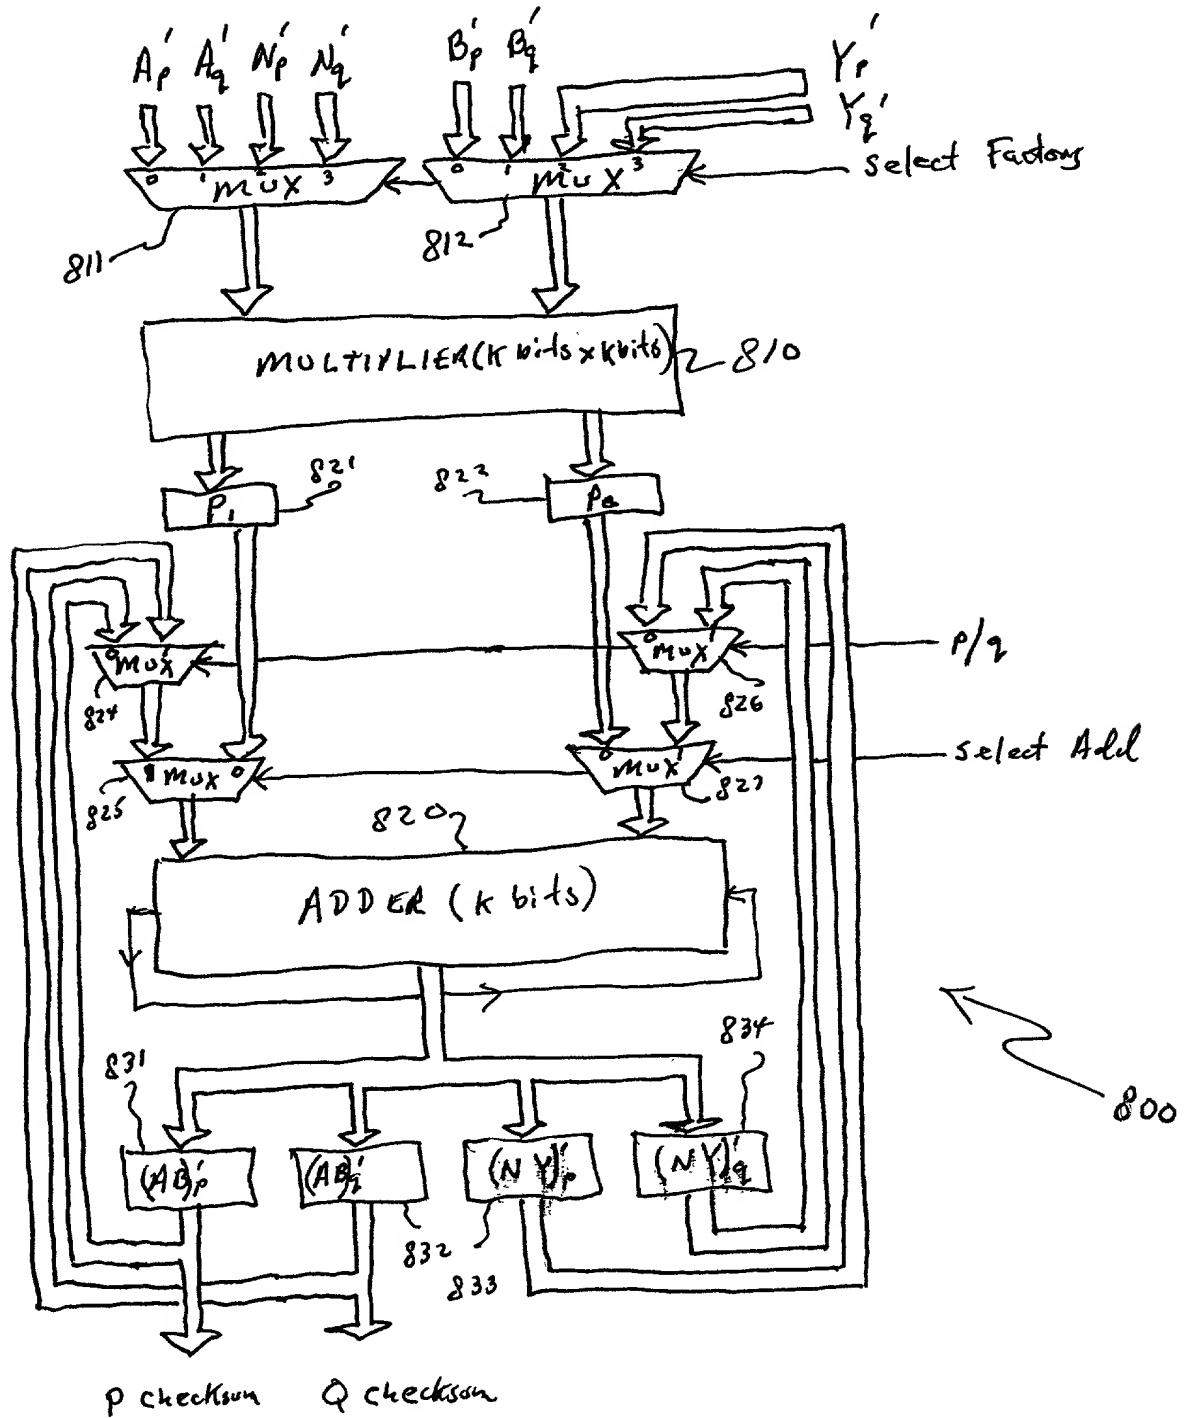 A'p A'q N'p N'q B'p B'q Y'p
Y'q
select Factors
0 1 2 3 MUX
0 1 2 3 MUX
811
812
MULTIPLIER (K bits x K bits)
810
821
822
P1
P0
0 MUX 1
0 MUX 1
P/q
824
826
1 MUX 0
0 MUX 1
select Add
825
827
820
ADDER (K bits)
800
831
834
(AB)'p
(AB)'q
(NY)'p
(NY)'q
832
833
P checksum
Q checksum